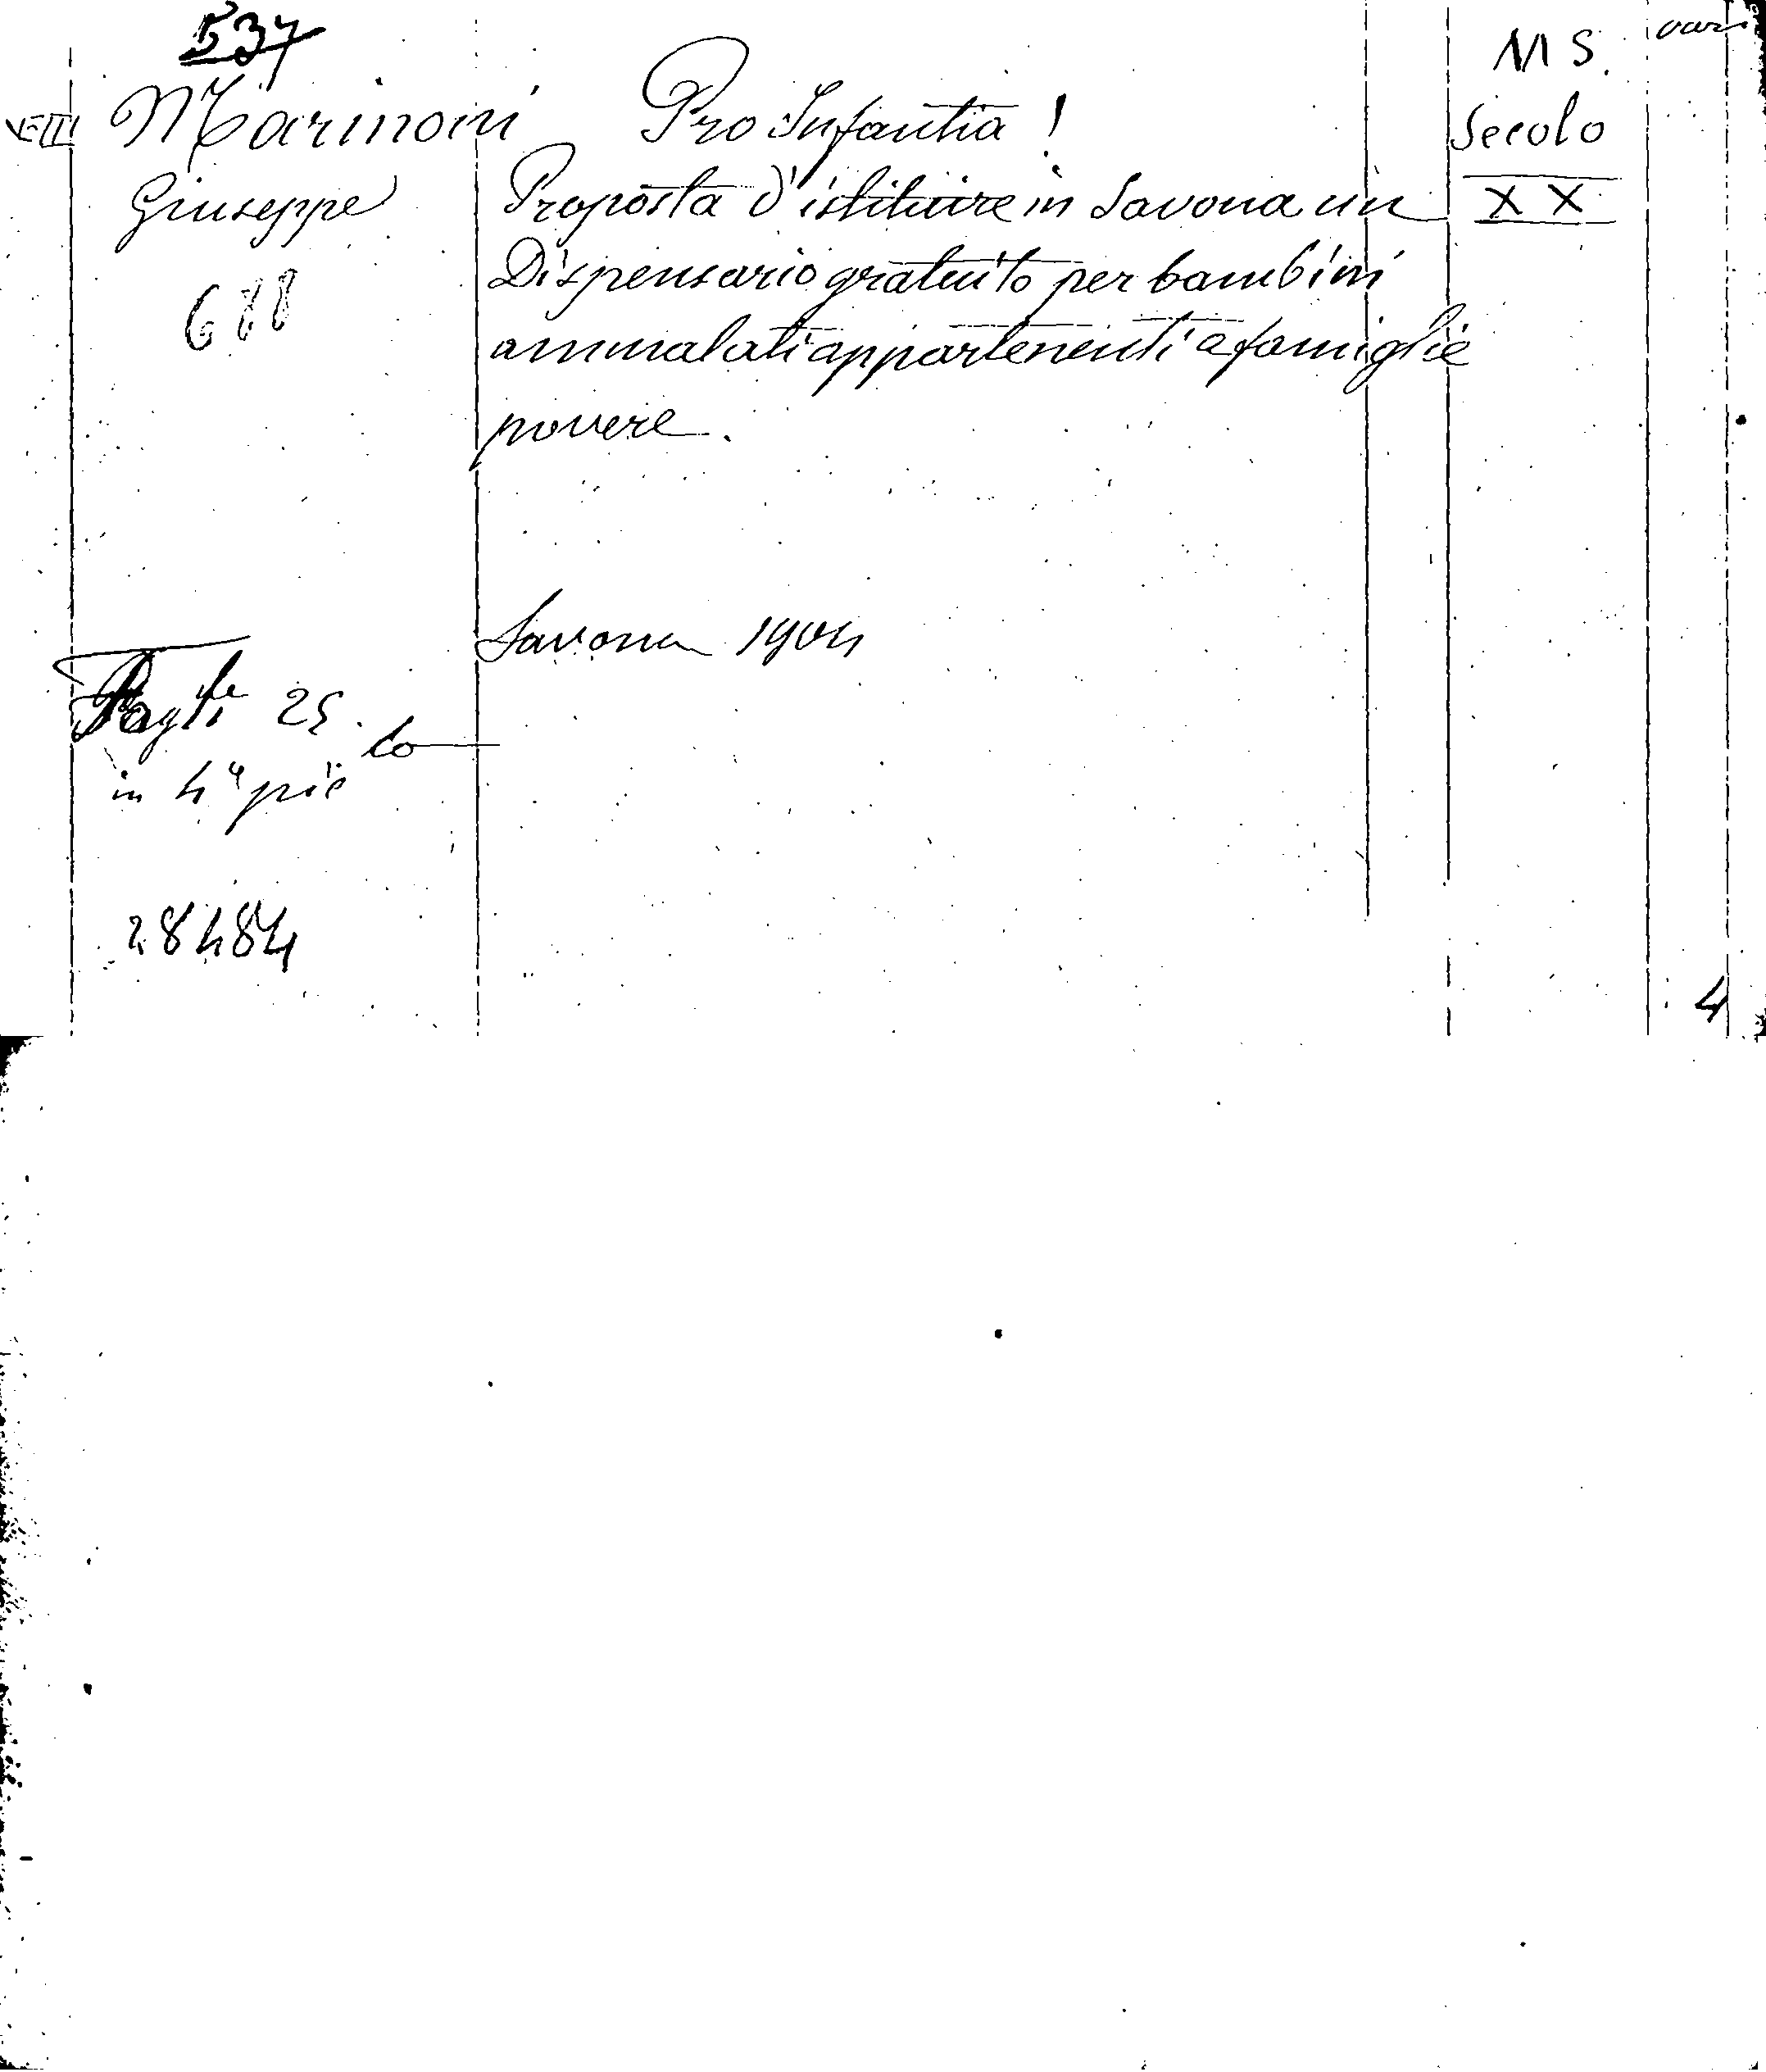 537
MS.
Marinoni
Pro Infantia!
Secolo
XX
Giuseppe
Proposta d'istituire in Savona un
Dispensario gratuito per bambini
ammalati appartenenti a famiglie
povere.
Savona 1904
25.
in 4°
28484
4